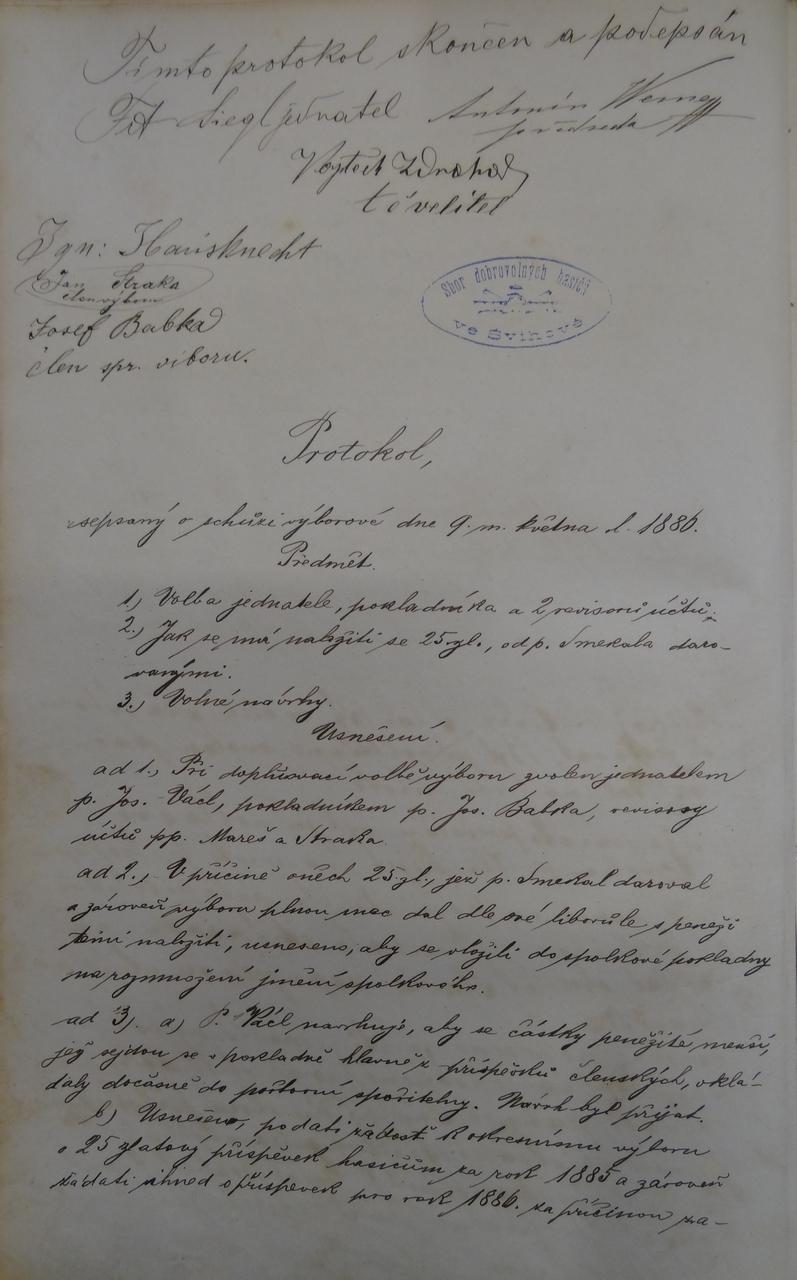 Tímto protokol skončen a podepsán
Siegl jednatel Antonín Werner
předseda
Vojtěch Zdrahal
t č velitel
Ign: Hausknecht
Jan Straka
člen výboru
Josef Babka
člen spr. viboru.
Sbor dobrovolných hasičů
ve Švihově
Protokol,
sepsaný o schůzi výborové dne 9. m. května l. 1886.
Předmět.
1.) Volba jednatele, pokladníka a 2 revisorů účtů.
2.) Jak se má naložiti se 25 zl., od p. Smekala daro-
vanými.
3.) Volné návrhy.
Usnešení.
ad 1., Při doplňovací volbě výboru zvolen jednatelem
p. Jos. Václ, pokladníkem p. Jos. Babka, revisory
účtů pp. Mareš a Straka.
ad 2., V příčině oněch 25 zl., jež p. Smekal daroval
a zároveň výboru plnou moc dal dle své libovůle s peněži
těmi naložiti, usneseno, aby se vložili do spolkové pokladny
na rozmnožení jmění spolkového.
ad 3). a) P. Václ navrhuje, aby se částky peněžité menší,
jež sejdou se v pokladně hlavně z příspěvků členských, vklá-
daly dočasně do poštovní spořitelny. Návrh byl přijat.
b) Usnešeno, podati žádost k okresnímu výboru
o 25 zlatový příspěvek hasičům za rok 1885 a zároveň
žádati ihned o příspěvek pro rok 1886. za příčinou za-